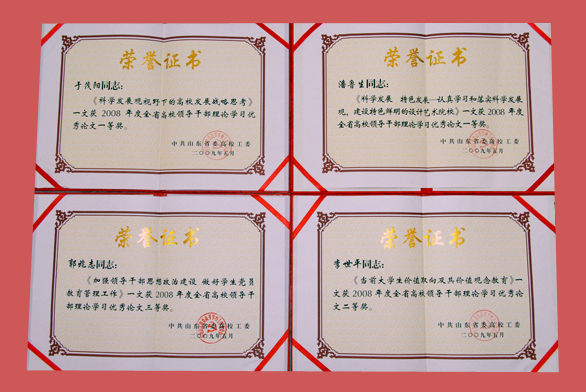 荣誉证书
于茂阳同志:
《科学发展观视野下的高校发展战略思考》
一文获 2008 年度全省高校领导干部理论学习优
秀论文一等奖。
中共山东省委高校工委
二〇〇九年五月
荣誉证书
潘鲁生同志:
《科学发展 特色发展—认真学习和落实科学发展
观，建设特色鲜明的设计艺术院校》一文获 2008 年度
全省高校领导干部理论学习优秀论文一等奖。
中共山东省委高校工委
二〇〇九年五月
荣誉证书
郭兆志同志:
《加强领导干部思想政治建设 做好学生党员
教育管理工作》一文获 2008 年度全省高校领导干
部理论学习优秀论文三等奖。
中共山东省委高校工委
二〇〇九年五月
荣誉证书
李世平同志:
《当前大学生价值取向及其价值观念教育》一
文获 2008 年度全省高校领导干部理论学习优秀论
文二等奖。
中共山东省委高校工委
二〇〇九年五月